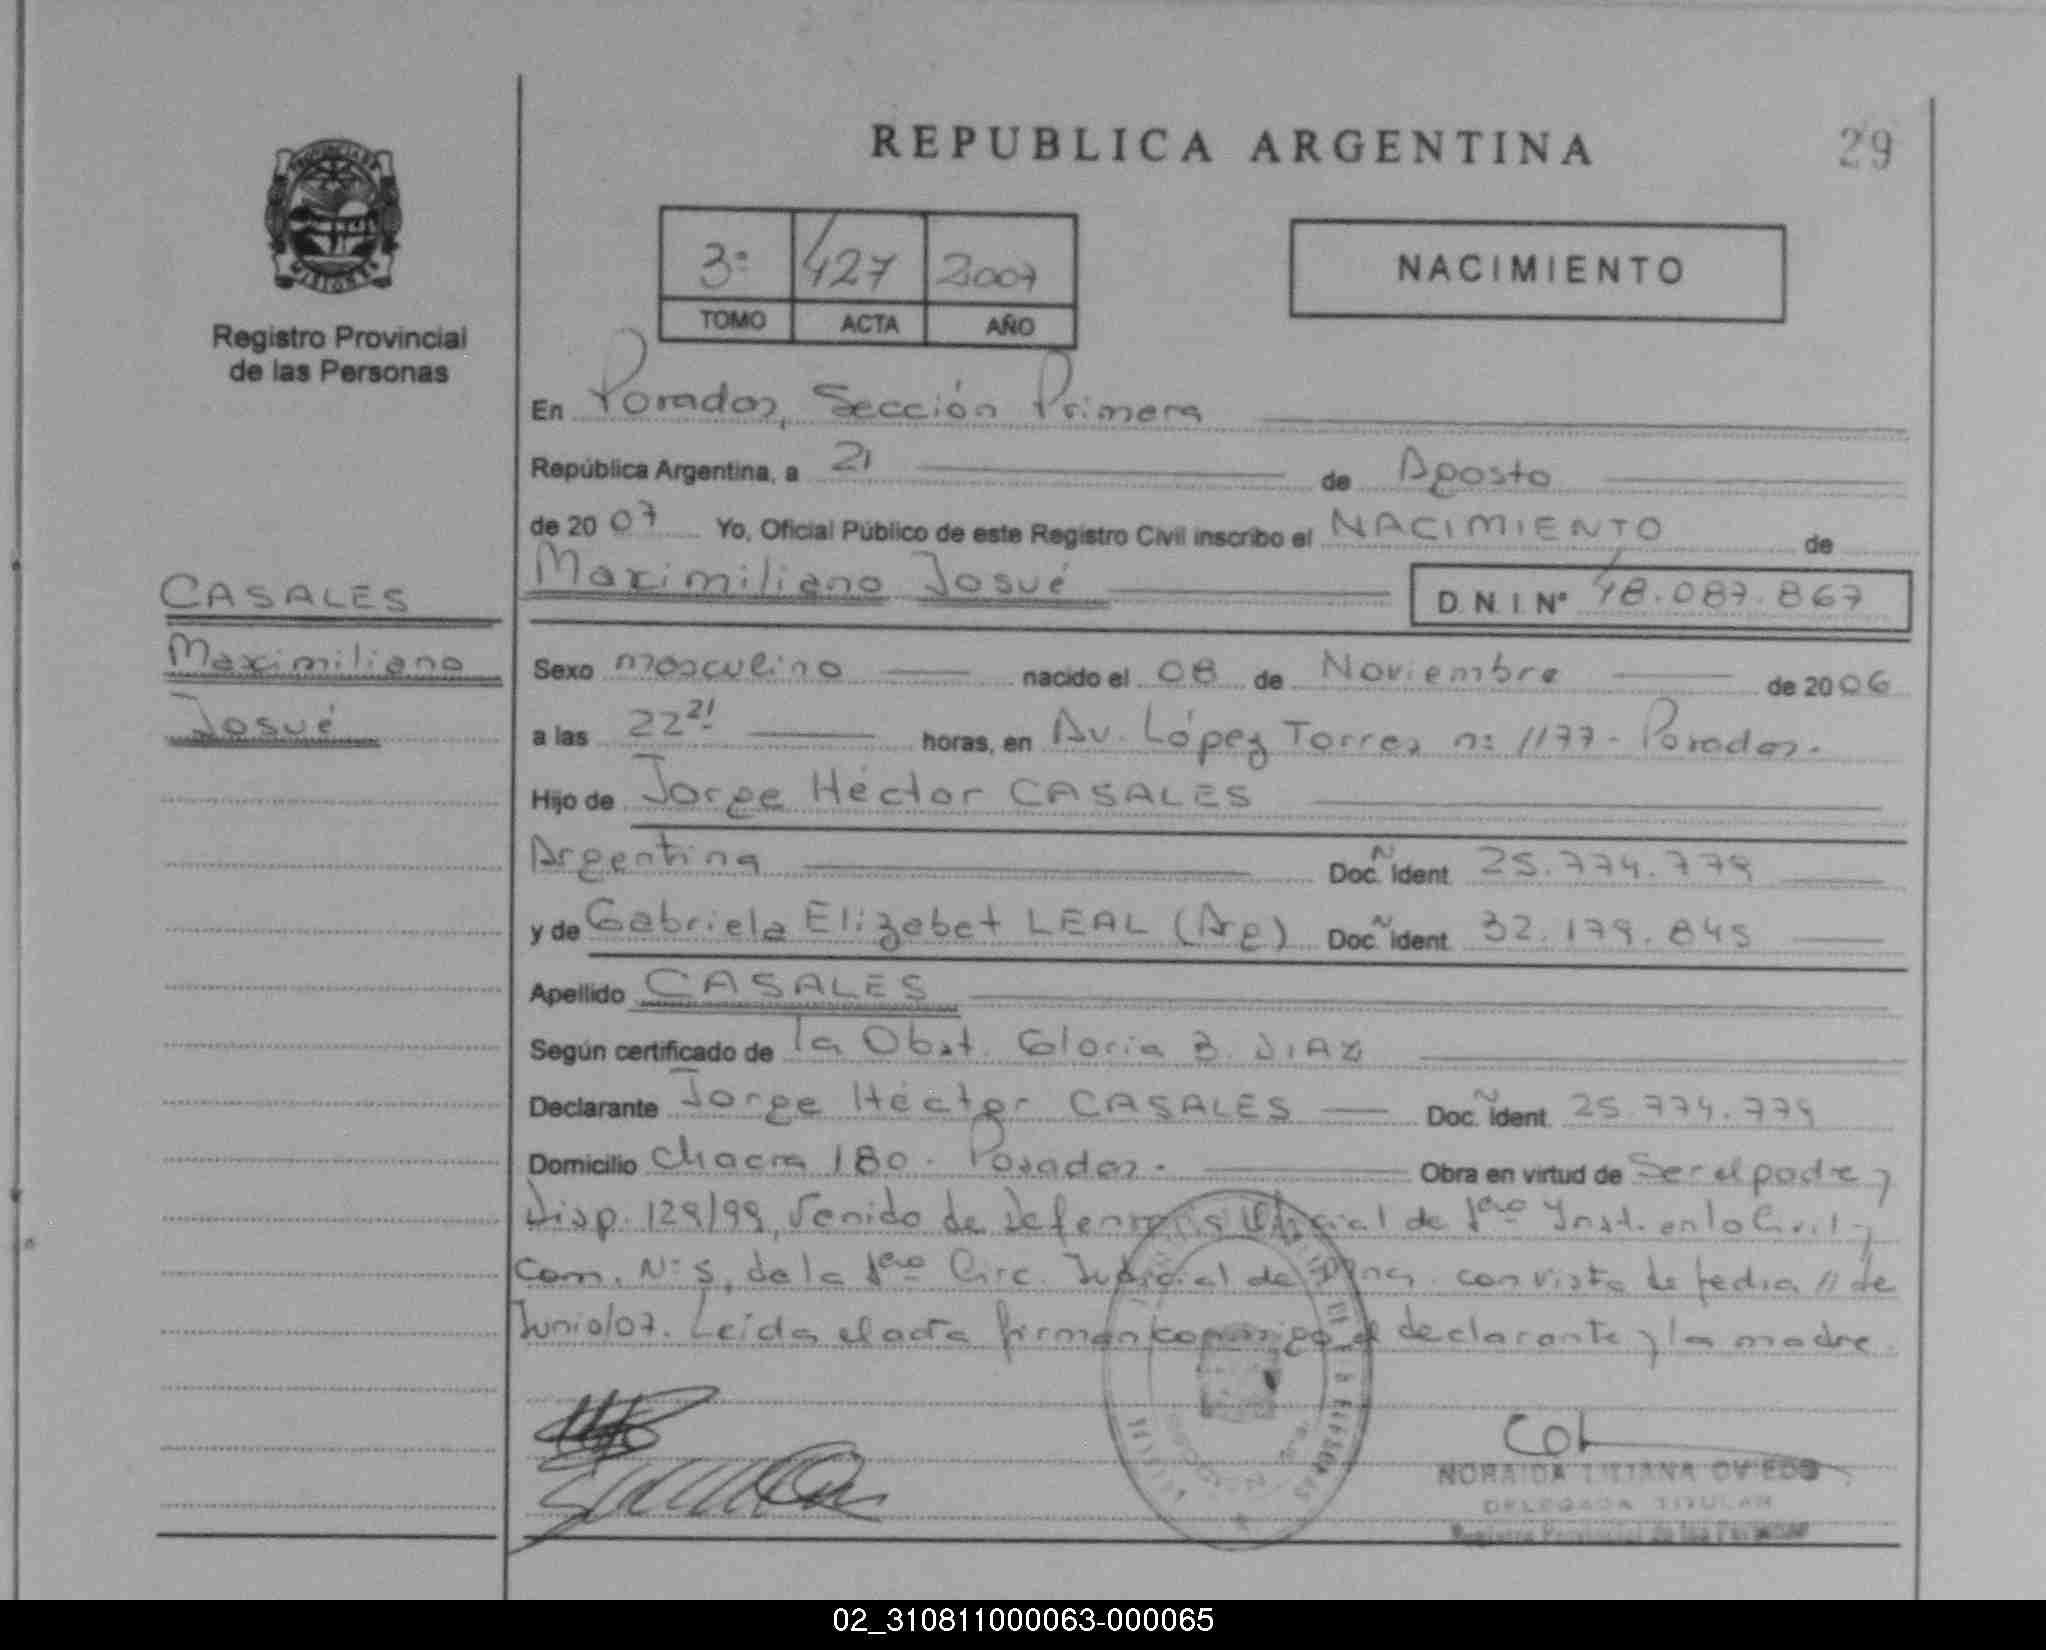 REPUBLICA ARGENTINA
29
PROVINCIA DE
MISIONES
Registro Provincial
de las Personas
3º 427 2007
TOMO ACTA AÑO
NACIMIENTO
En Posadas, Sección Primera
República Argentina, a 21 de Agosto
de 2007 Yo, Oficial Público de este Registro Civil inscribo el NACIMIENTO de
Maximiliano Josué D.N.I Nº 48.087.867
CASALES
Maximiliano
Josué
Sexo masculino nacido el 08 de Noviembre de 2006
a las 22 21 horas, en Av. López Torres nº 1177 - Posadas.
Hijo de Jorge Héctor CASALES
Argentina Doc. Ñ Ident. 25.774.779
y de Gabriela Elizabet LEAL (Arg) Doc. Ñ Ident. 32.179.845
Apellido CASALES
Según certificado de la Obst. Gloria B. DIAZ
Declarante Jorge Héctor CASALES Doc. Ñ Ident. 25.774.779
Domicilio Chacra 180 - Posadas. Obra en virtud de Ser el padre y
Disp. 129/99, Venido de Defensoría Oficial de 1era Inst. en lo Civil y
Com. Nº 5, de la 1era Circ. Judicial de Mnes. con vista de fecha 11 de
Junio/07. Leída el acta firman conmigo el declarante y la madre.
NORAIDA LILIANA OVIEDO
DELEGADA TITULAR
Registro Provincial de las Personas
02_310811000063-000065